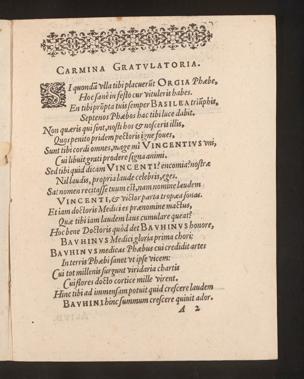 CARMINA GRATVLATORIA.
SI quondā vlla tibi placuerūt ORGIA Phœbe,
Hoc sanè in festo cur vitulerit habes.
En tibi prōpta tuis semper BASILEA triūphis,
Septenos Phœbos hac tibi luce dabit.
Non quæris qui sint, nosti hos & noscerit illis,
Quos penito pridem pectoris igne foues,
Sunt tibi cordi omnes, mage mi VINCENTIVS vni,
Cui libuit grati prodere signa animi.
Sed tibi quid dicam VINCENTI? encomia? nostræ
Nil laudis, propria laude celebris, eges.
Sat nomen recitasse tuum est, nam nomine laudem
VINCENTI, & victor parta tropæa sonas.
Et iam doctoris Medici es prænomine mactus,
Quæ tibi iam laudem laus cumulare queat?
Hoc bene Doctoris quòd det BAVHINVS honore,
BAVHINVS Medici gloria prima chori:
BAVHINVS medicas Phœbus cui credidit artes
In terris Phœbi sanet vt ipse vicem:
Cui tot millenis surgunt viridaria chartis
Cui flores docto cortice mille virent.
Hinc tibi ad immensam potuit quid crescere laudem
BAVHINI hinc summum crescere quiuit ador.
A 2